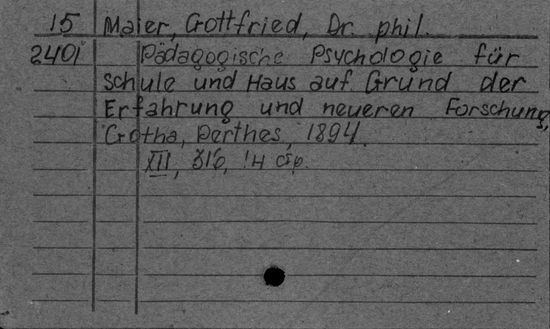 15 Maier, Gottfried, Dr. phil.
2401 Pädagogische Psychologie für
schule und Haus auf Grund der
Erfahrung und neueren Forschung,
Gotha, Perthes, 1894.
XII, 316, 14 стр.